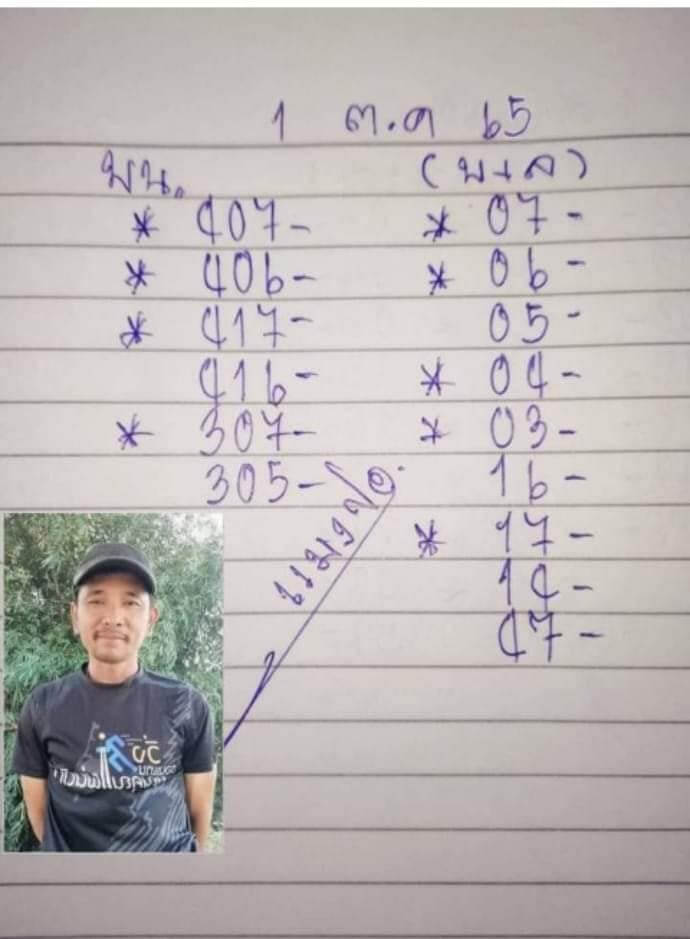 1 ต.ค 65
บน. (บ+ล)
* 407- * 07-
* 406- * 06-
* 417- 05-
416- * 04-
* 307- * 03-
305- 16-
* 17-
14-
47-